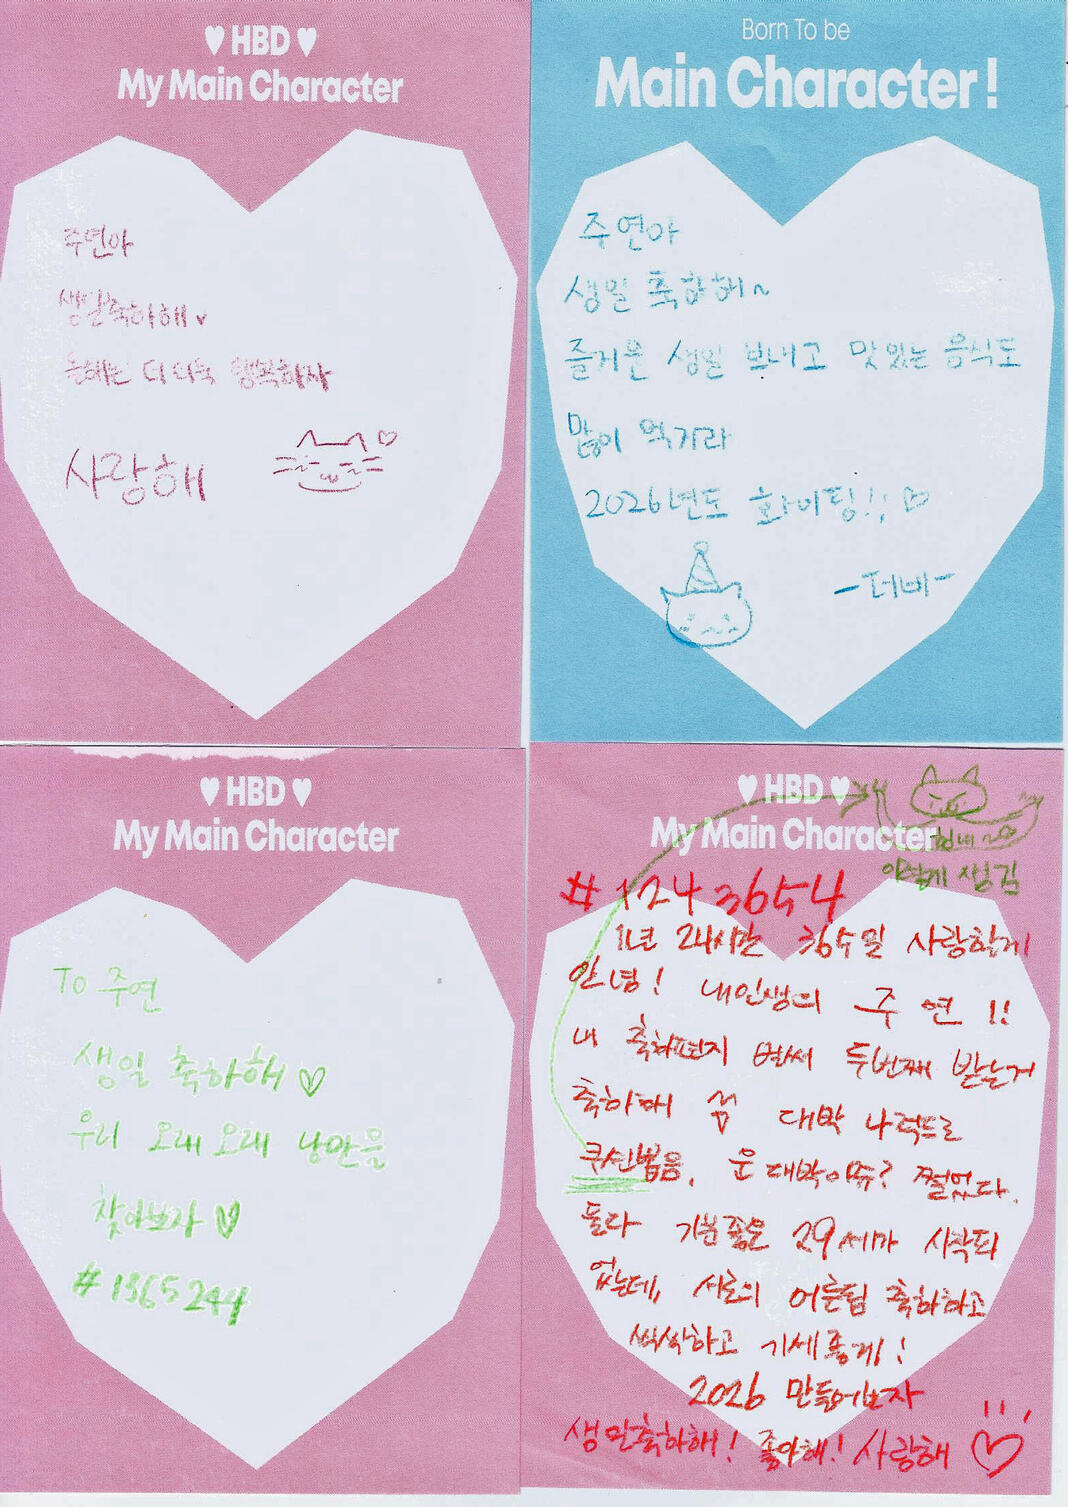 ♥ HBD ♥
My Main Character
주연아
생일축하해♥
올해는 더더욱 행복하자
사랑해
Born To be
Main Character!
주연아
생일 축하해~
즐거운 생일 보내고 맛있는 음식도
많이 먹기라
2026년도 화이팅!! ♡
-더비-
♥ HBD ♥
My Main Character
To 주연
생일 축하해♡
우리 오래오래 낭만을
찾아보자♥
#1365244
♥ HBD ♥
My Main Character
힘내~
이렇게 생김
#1243654
1년 24시간 365일 사랑할게
안녕! 내인생의 주연!!
내 축하편지 벌써 두번째 받는거
축하해 대박 나럭드로
쿠션뽑음. 운 대박이쥬? 쩔었다.
둘다 기분좋은 29세가 시작되
었는데, 서로의 어른됨 축하하고
씩씩하고 기세좋게!
2026 만들어보자
생일축하해! 좋아해! 사랑해 ♡